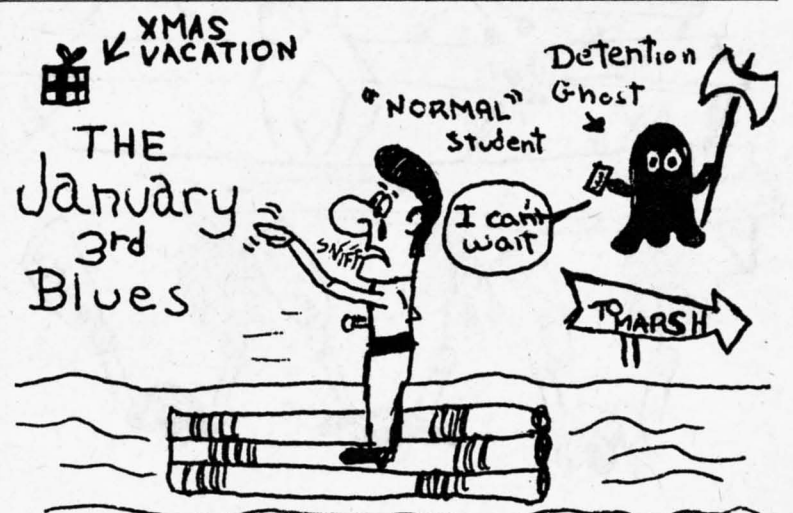 XMAS
VACATION
THE
January
3rd
Blues
"NORMAL"
Student
Detention
Ghost
SNIFF
I can't
wait
TO MARSH